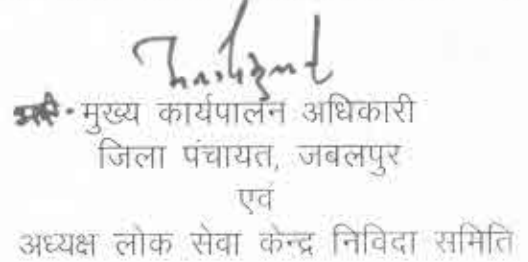 मुख्य कार्यपालन अधिकारी
जिला पंचायत, जबलपुर
एवं
अध्यक्ष लोक सेवा केन्द्र निविदा समिति